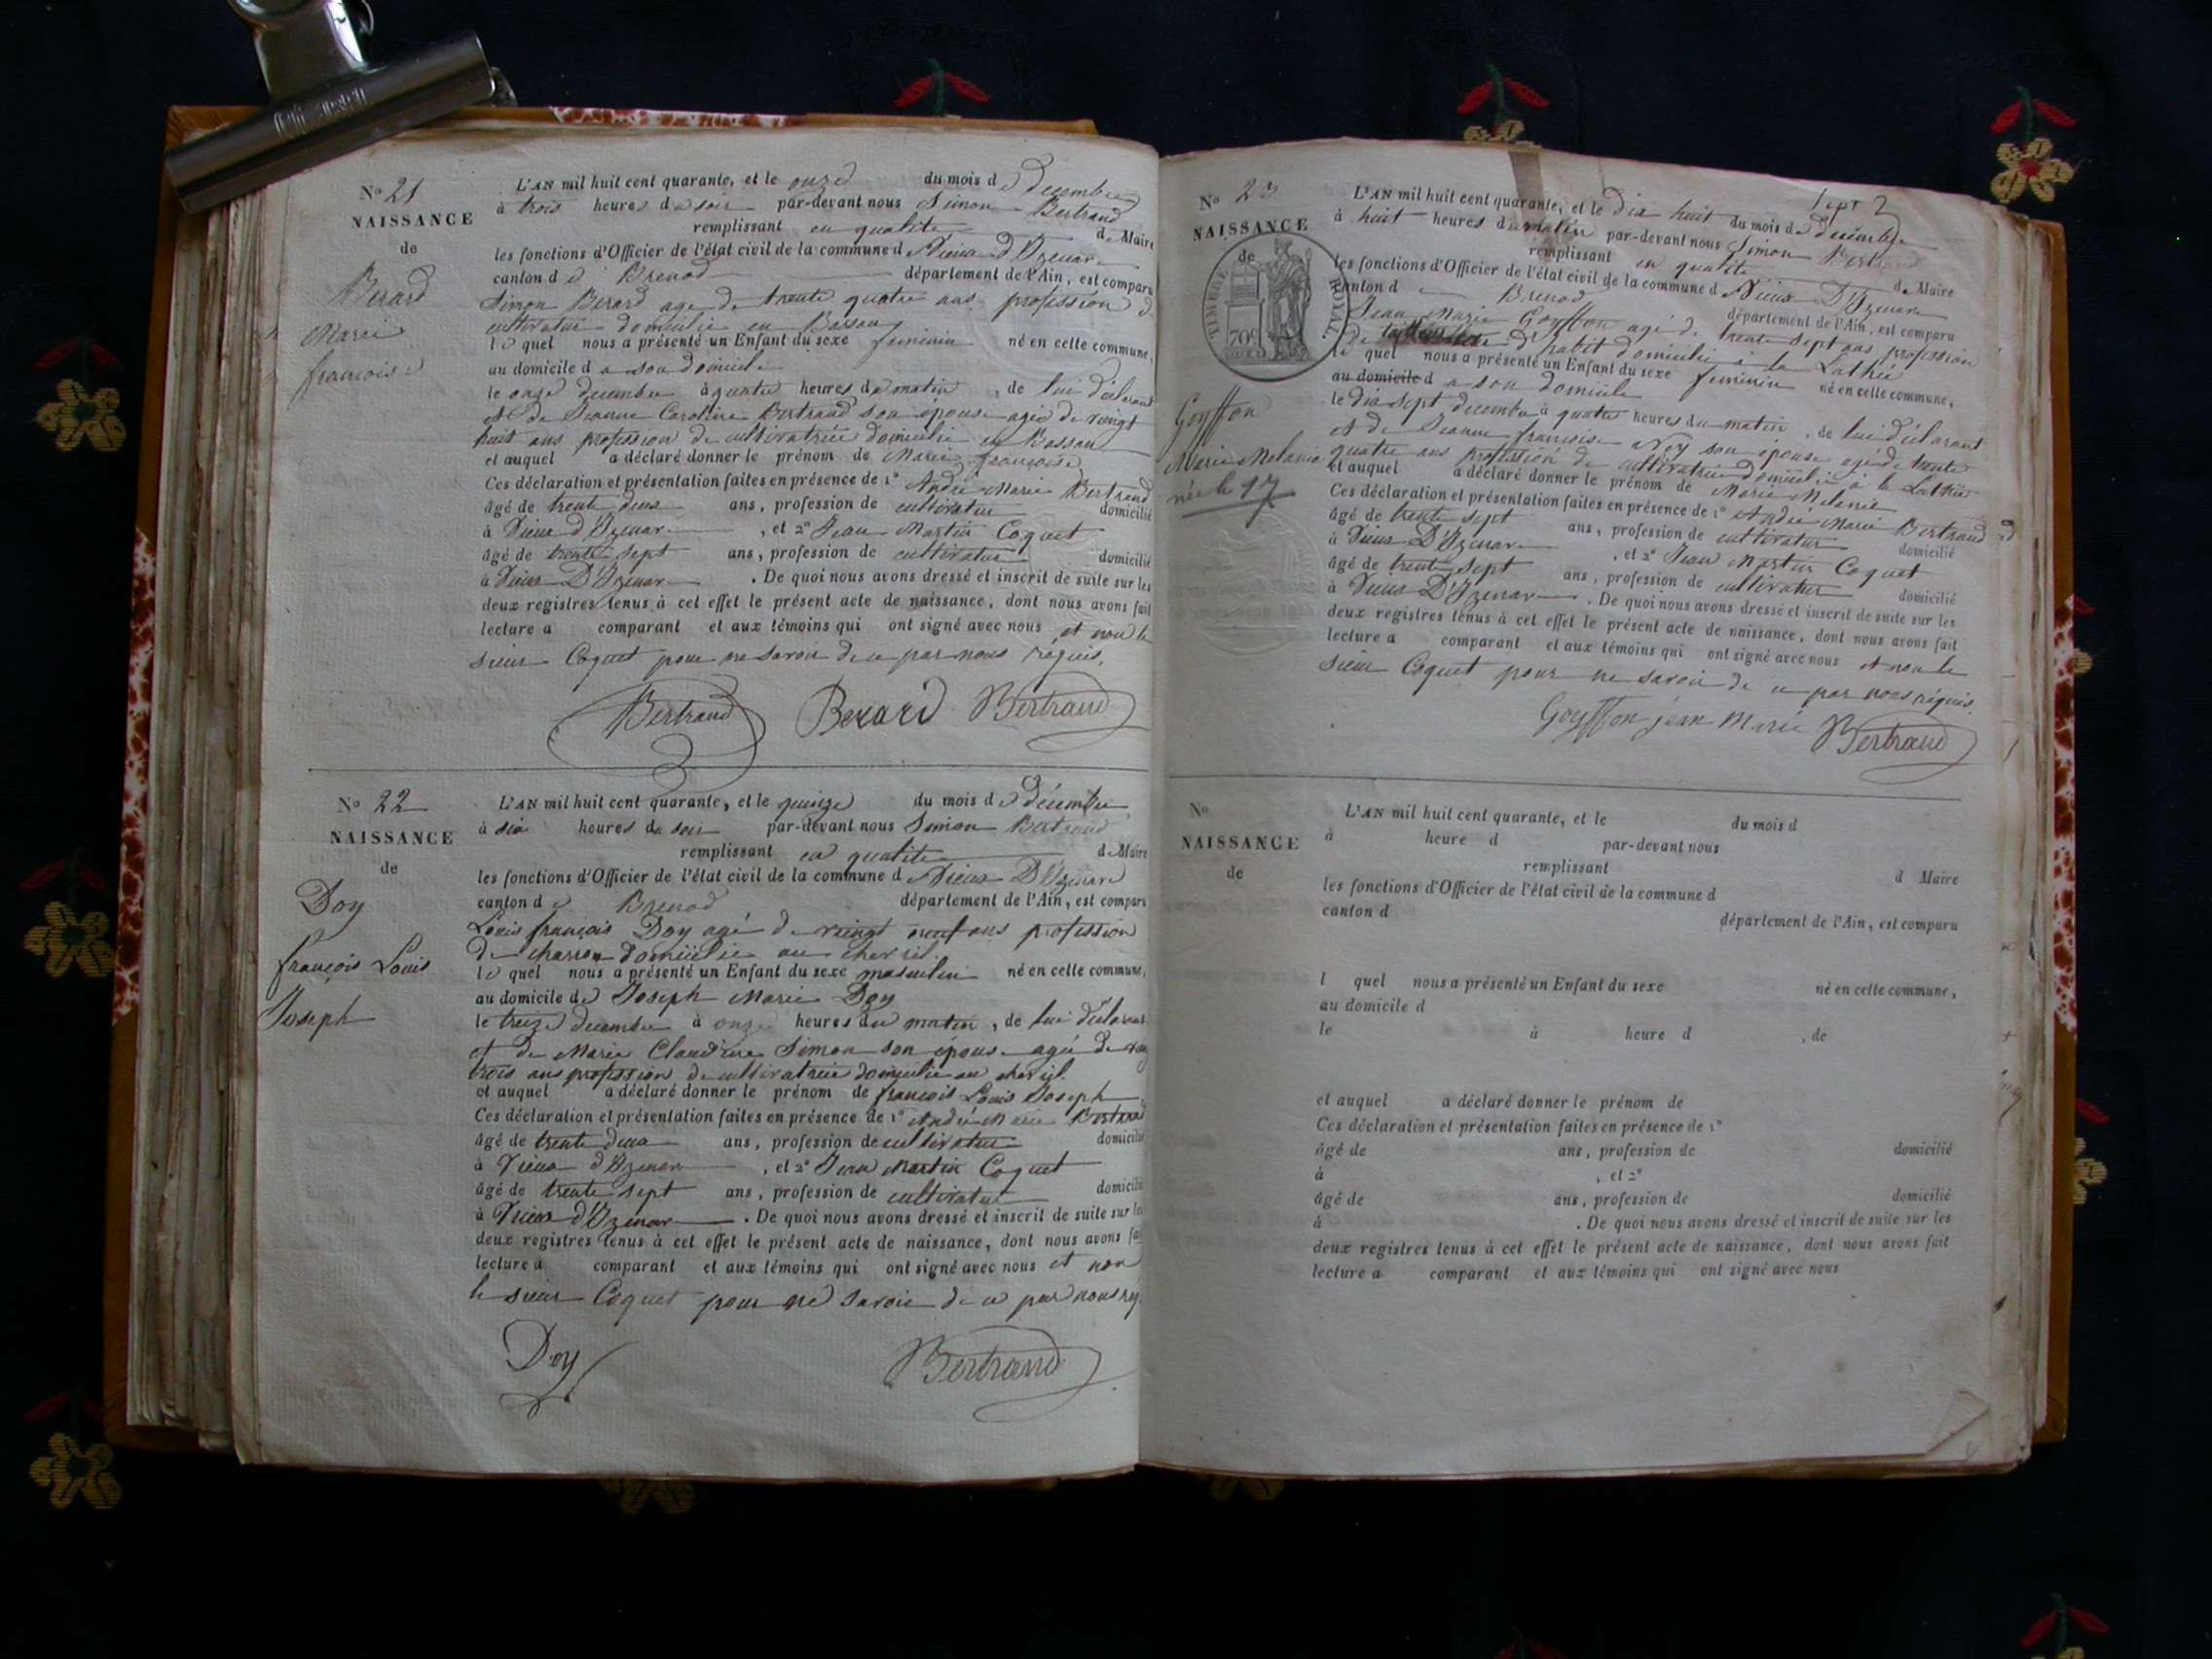 N° 21
NAISSANCE
de
Berard
Marie
françoise
L'AN mil huit cent quarante, et le onze du mois de decembre
à trois heures du soir par-devant nous Simon Bertrand
remplissant en qualité de Maire
les fonctions d'Officier de l'état civil de la commune de Vieux d'Izenave
canton de Brenod département de l'Ain, est comparu
Simon Berard age de trente quatre ans profession de
cultivateur domicilié en Bassan
le quel nous a présenté un Enfant du sexe feminin né en cette commune,
au domicile d a son domicile
le onze decembre à quatre heures du matin, de lui déclarant
et de Jeanne Caroline Bertrand son épouse agée de vingt
huit ans profession de cultivatrice domicilié en Bassan
et auquel a déclaré donner le prénom de Marie françoise
Ces déclaration et présentation faites en présence de 1° André Marie Bertrand
âgé de trente deux ans, profession de cultivateur domicilié
à Vieux d'Izenave, et 2° Jean Martin Coquet
âgé de trente sept ans, profession de cultivateur domicilié
à Vieux D'Izenave. De quoi nous avons dressé et inscrit de suite sur les
deux registres tenus à cet effet le présent acte de naissance, dont nous avons fait
lecture a comparant et aux témoins qui ont signé avec nous et non le
sieur Coquet pour ne savoir de ce par nous requis.
Bertrand Berard Bertrand
N° 22
NAISSANCE
de
Doy
françois Louis
Joseph
L'AN mil huit cent quarante, et le quinze du mois de décembre
à six heures du soir par-devant nous Simon Bertrand
remplissant en qualité de Maire
les fonctions d'Officier de l'état civil de la commune de Vieux D'Izenave
canton de Brenod département de l'Ain, est comparu
Louis françois Doy agé de vingt neuf ans profession
de charron domicilié au chevril.
le quel nous a présenté un Enfant du sexe masculin né en cette commune,
au domicile de Joseph Marie Doy
le treize decembre à onze heures du matin, de lui déclarant
et de Marie Claudine Simon son épouse agée de
trois ans profession de cultivatrice domicilié au chevril.
et auquel a déclaré donner le prénom de françois Louis Joseph
Ces déclaration et présentation faites en présence de 1° André Marie Bertrand
âgé de trente deux ans, profession de cultivateur domicilié
à Vieux d'Izenave, et 2° Jean Martin Coquet
âgé de trente sept ans, profession de cultivateur domicilié
à Vieux d'Izenave. De quoi nous avons dressé et inscrit de suite sur les
deux registres tenus à cet effet le présent acte de naissance, dont nous avons fai
lecture a comparant et aux témoins qui ont signé avec nous et non
le sieur Coquet pour ne savoir de ce par nous req
Doy Bertrand
N° 23
NAISSANCE
de
TIMBRE ROYAL
70c
Goyffon
Marie Melanie
née le 17
L'AN mil huit cent quarante, et le dix huit du mois de décembre
à huit heures du matin par-devant nous Simon Bertrand
remplissant en qualité de Maire
les fonctions d'Officier de l'état civil de la commune d Vieux D'Izenave
canton d Brenod département de l'Ain, est comparu
Jean Marie Goyffon agé de trente sept ans profession
de d'habit domicilié à la Lathié
le quel nous a présenté un Enfant du sexe feminin né en cette commune,
au domicile d a son domicile
le dix sept decembre à quatre heures du matin, de lui déclarant
et de Jeanne françoise son épouse agé de trente
quatre ans profession de cultivatrice domicilié à la Lathié
et auquel a déclaré donner le prénom de Marie Melanie
Ces déclaration et présentation faites en présence de 1° André Marie Bertrand
âgé de trente sept ans, profession de cultivateur domicilié
à Vieux D'Izenave, et 2° Jean Martin Coquet
âgé de trente sept ans, profession de cultivateur domicilié
à Vieux D'Izenave. De quoi nous avons dressé et inscrit de suite sur les
deux registres tenus à cet effet le présent acte de naissance, dont nous avons fait
lecture a comparant et aux témoins qui ont signé avec nous et non le
sieur Coquet pour ne savoir de ce par nous réquis.
Goyffon jean Marie Bertrand
N°
NAISSANCE
de
L'AN mil huit cent quarante, et le du mois d
à heure d par-devant nous
remplissant d Maire
les fonctions d'Officier de l'état civil de la commune d
canton d département de l'Ain, est comparu
l quel nous a présenté un Enfant du sexe né en cette commune,
au domicile d
le à heure d , de
et auquel a déclaré donner le prénom de
Ces déclaration et présentation faites en présence de 1°
âgé de ans, profession de domicilié
à , et 2°
âgé de ans, profession de domicilié
à . De quoi nous avons dressé et inscrit de suite sur les
deux registres tenus à cet effet le présent acte de naissance, dont nous avons fait
lecture a comparant et aux témoins qui ont signé avec nous